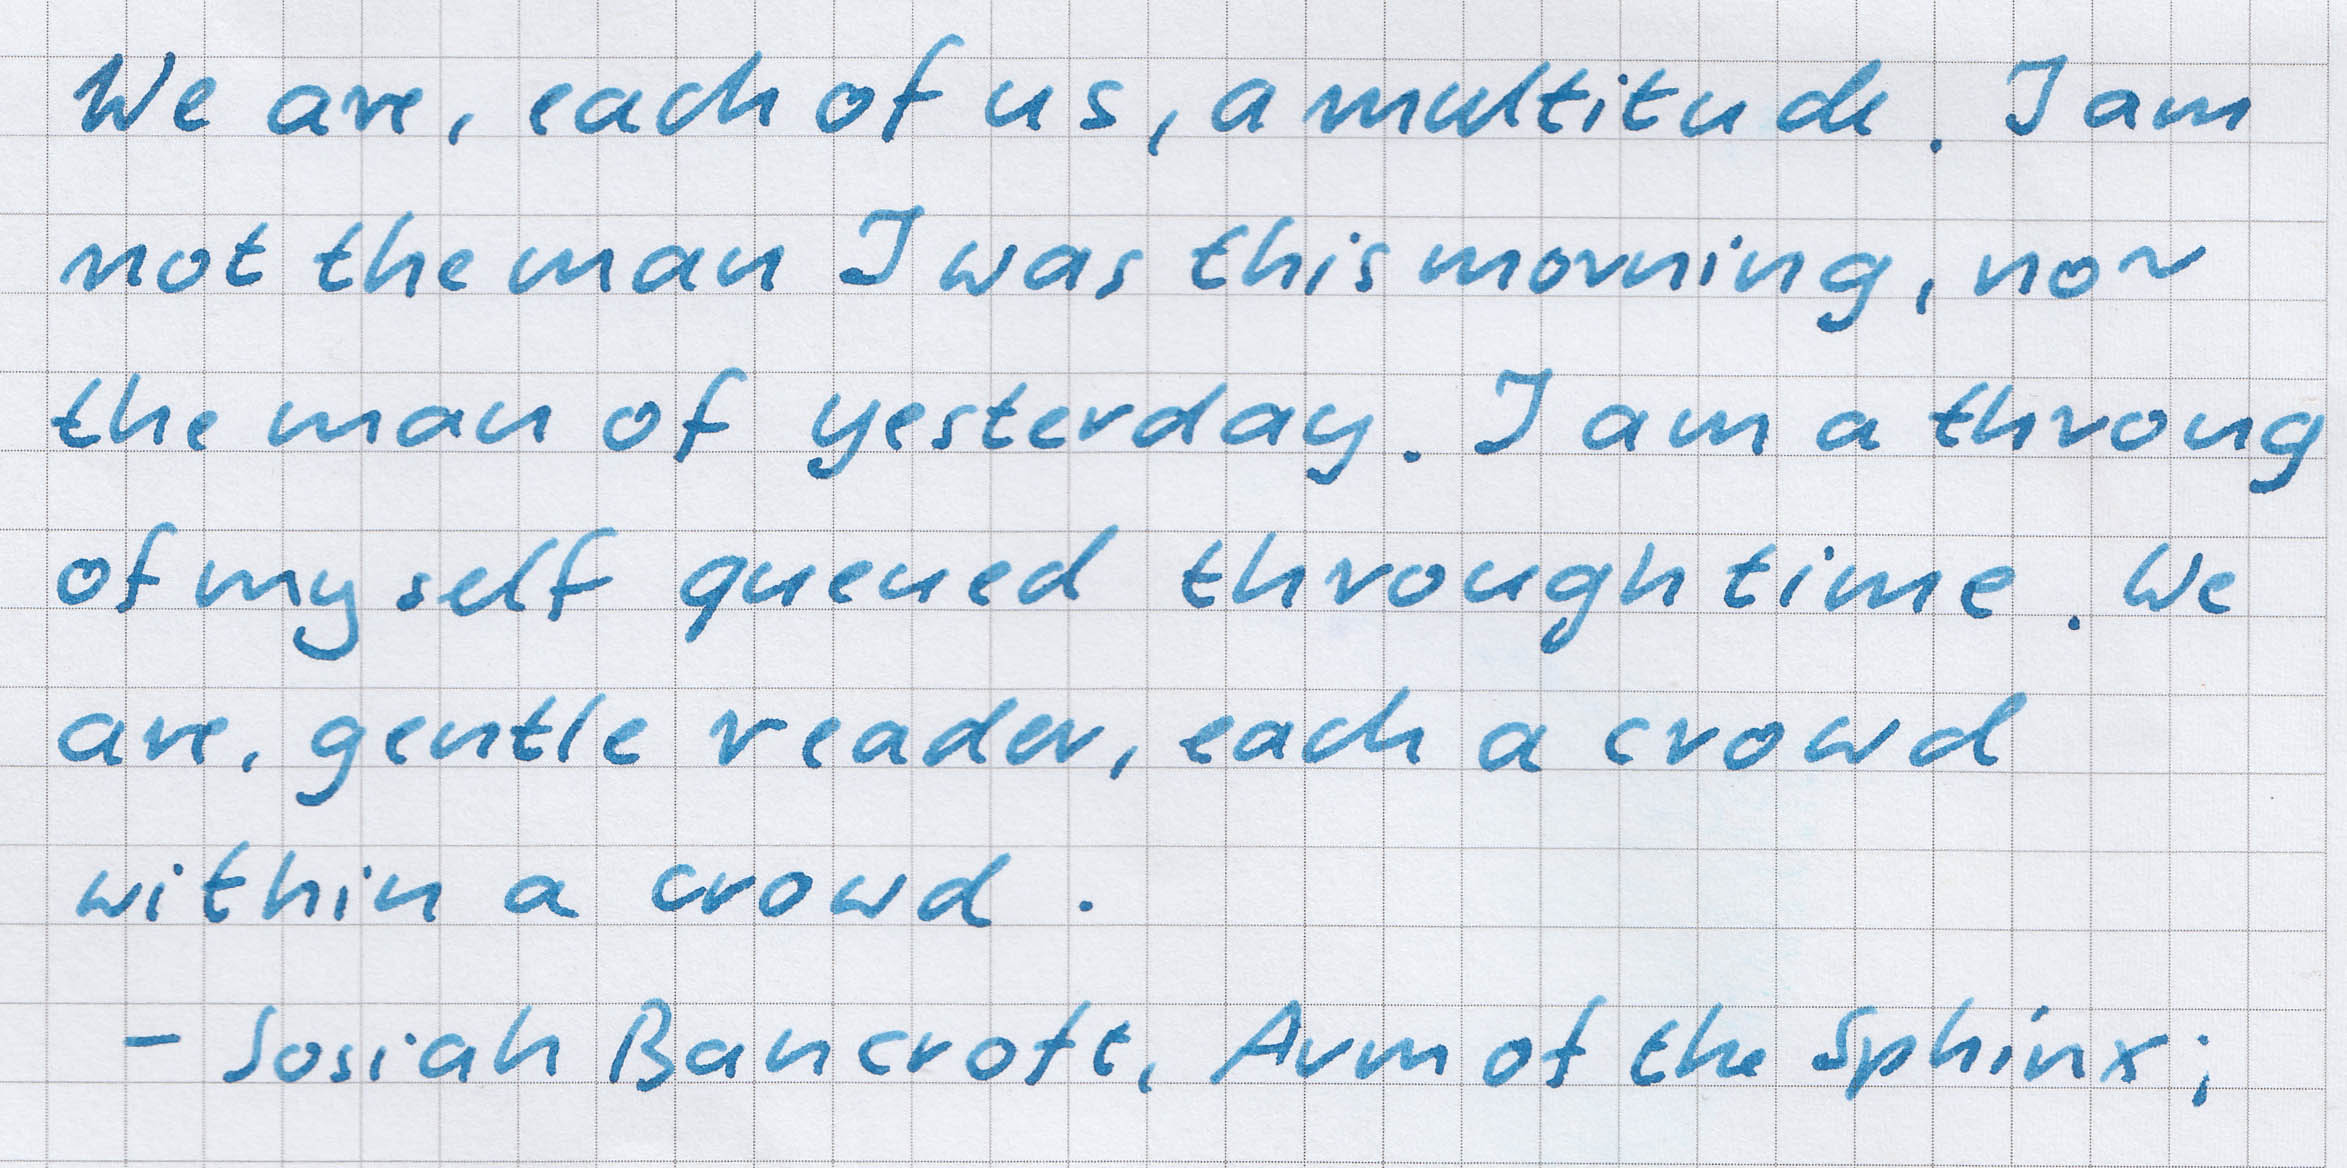 We are, each of us, a multitude. I am
not the man I was this morning, nor
the man of yesterday. I am a throng
of myself queued through time. We
are, gentle reader, each a crowd
within a crowd.
- Josiah Bancroft, Arm of the Sphinx;